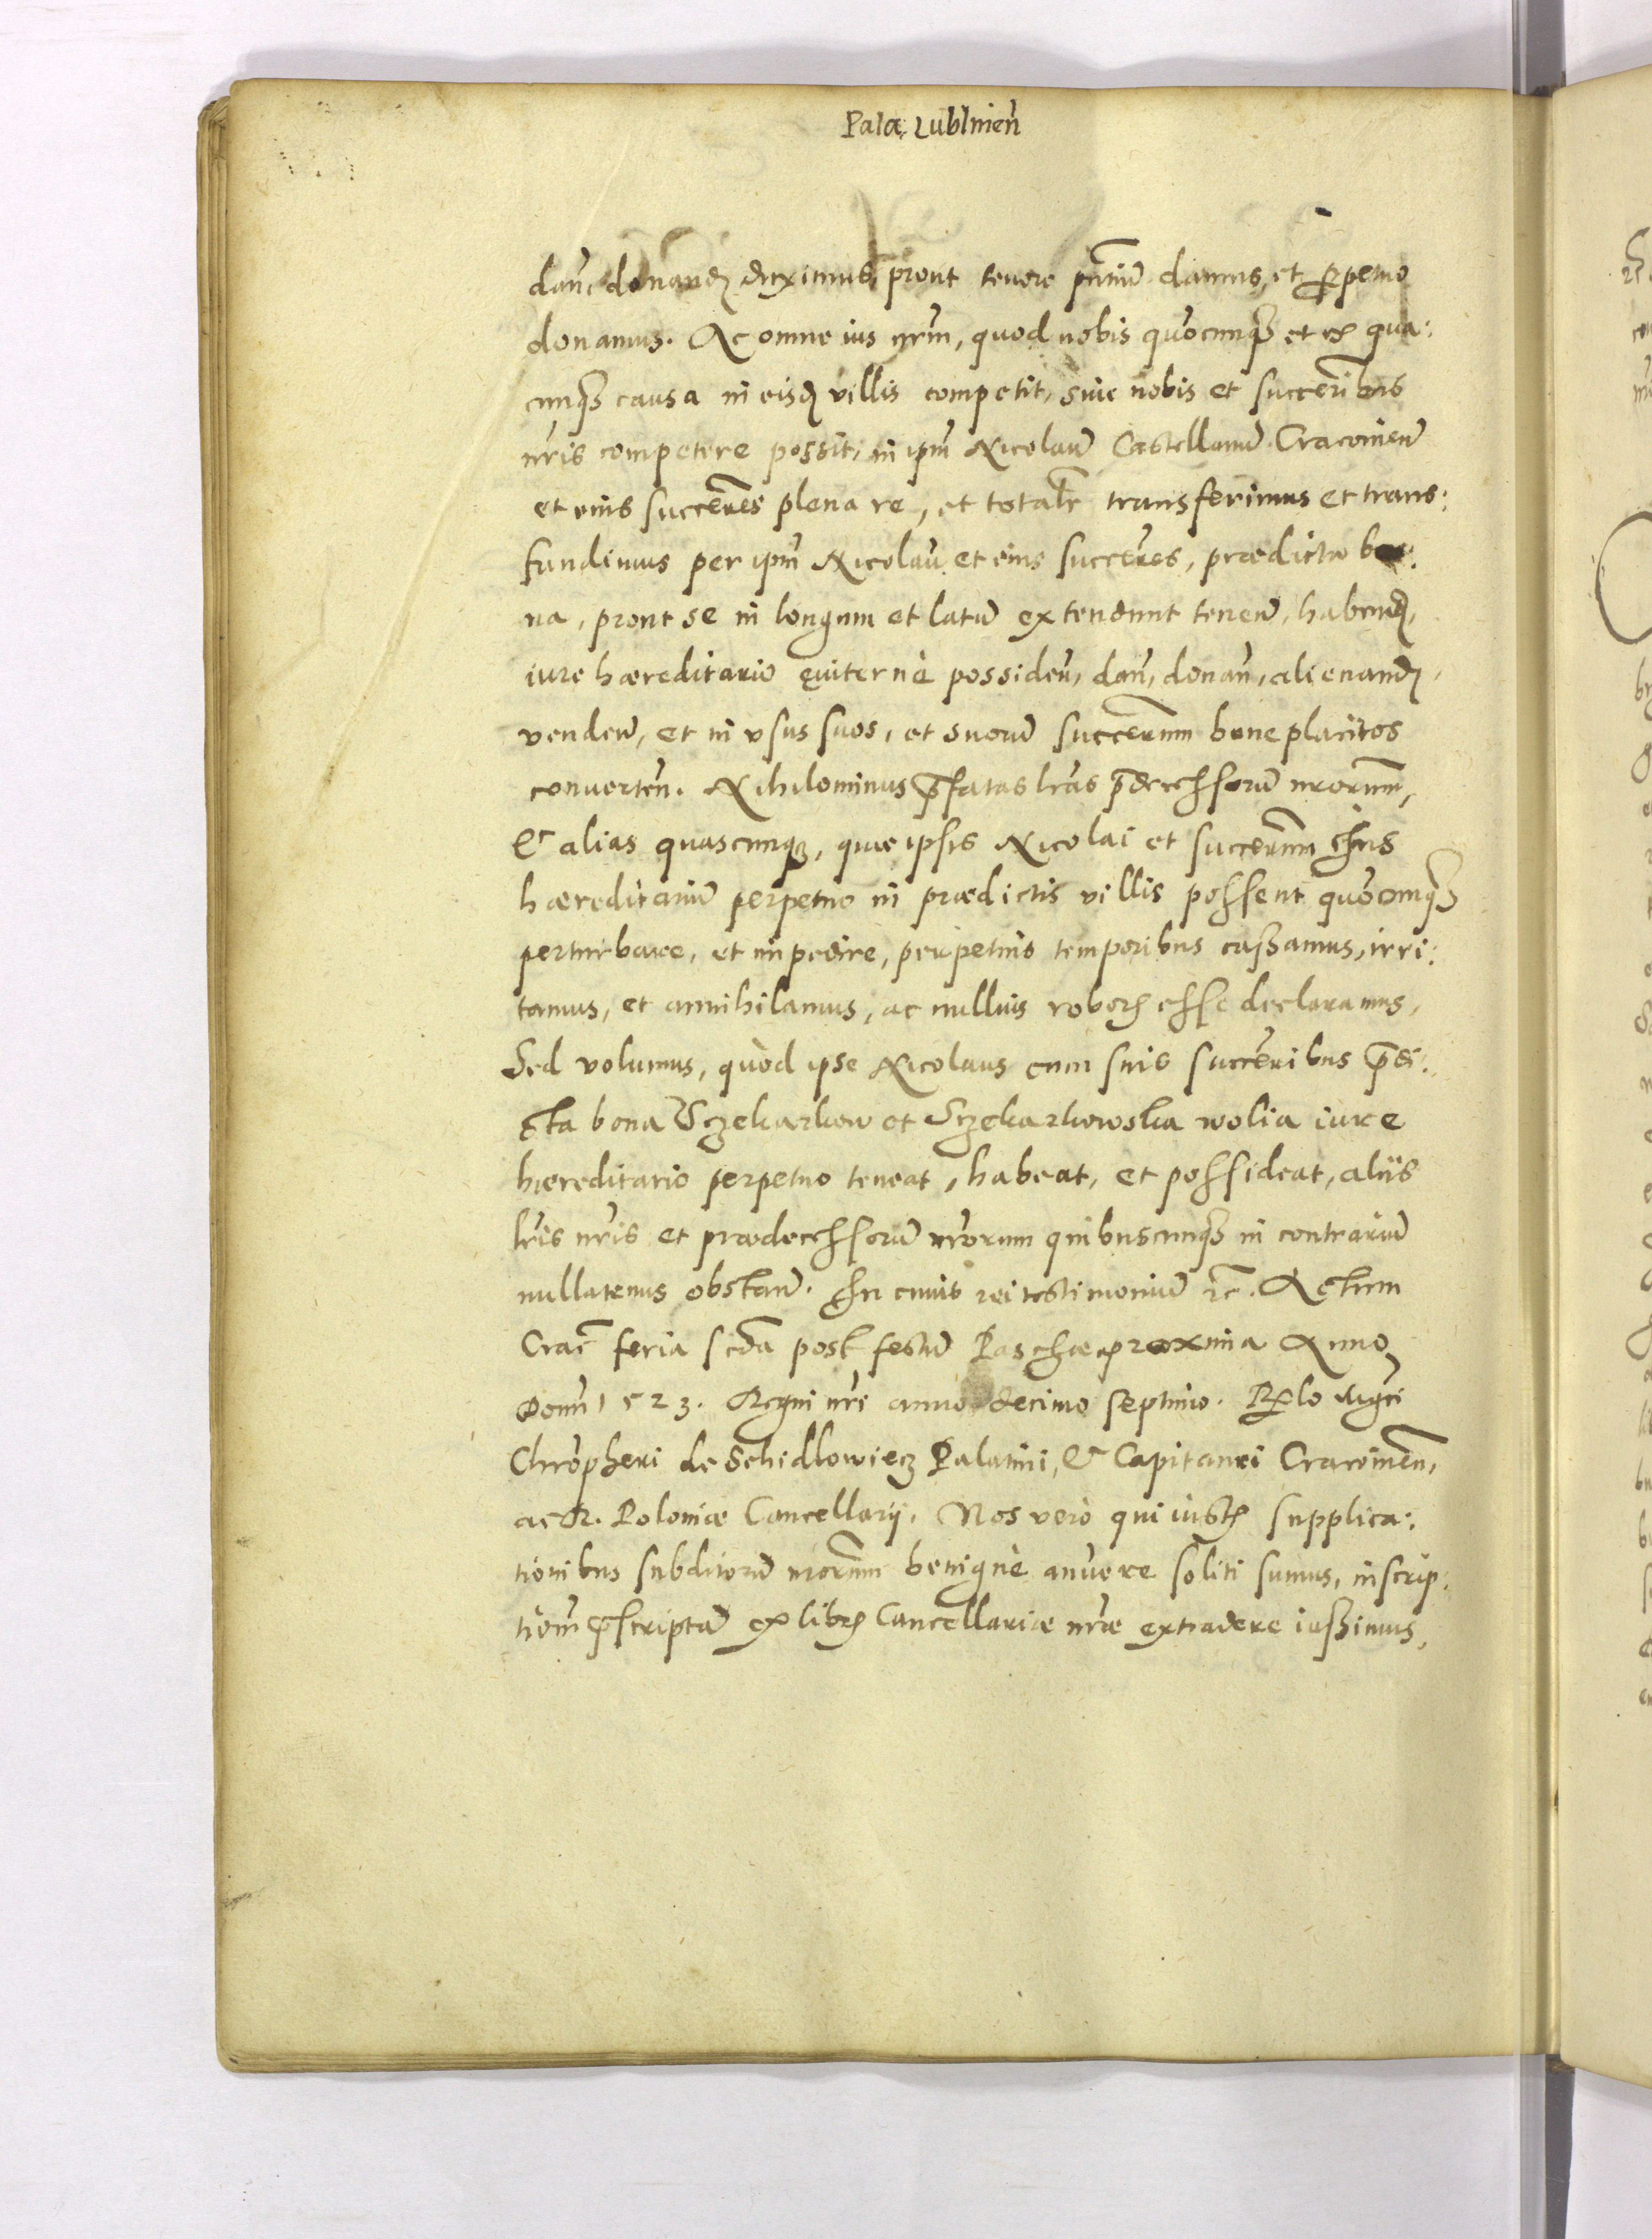 Pala. Lublinen̄
dan̄, donand duximus, prout tenore pn̄tiū damus, et ꝑpetuo
donamus. Ac omne ius nr̄m, quod nobis quocunqꝫ et ex qua:
cunqꝫ causa in eisd villis competit, siue nobis et succeribus
nr̄is competere possit, in ipm̄ Nicolaū Castellanū Cracouien̄
et eius succeres plenarie, et totalr̄ transferimus et trans:
fundimus per ipm̄ Nicolaū et eius succeres, prædicta bo:
na, prout se in longum et latū extendunt tenen̄, habend,
iure hæreditario ęuiternè possiden̄, dan̄, donan̄, alienand,
venden̄, et in vsus suos, et suorū succerum beneplacitos
conuerten̄. Nihilominus p̄fatas lr̄as p̄decessorū nrorum,
& alias quascunqꝫ, quæ ipsis Nicolai et succerum eius
hæreditariū perpetuo in prædictis villis possent quocunqꝫ
perturbare, et impedire, perpetuis temporibus cassamus, irri:
tamus, et annihilamus, ac nullius roboris esse declaramus,
Sed volumus, quòd ipse Nicolaus cum suis succeribus p̄di:
cta bona Sczekarkow et Sczekarkowska wolia iure
hæreditario perpetuo teneat, habeat, et possideat, aliis
lr̄is nr̄is et prædecessorū nrorum quibuscunqꝫ in contrariū
nullatenus obstan̄. In cuius rei testimoniū etc. Actum
Crac̄ feria scda post festū Paschæ proxima Anno
Domi 1523. Regni nr̄i anno decimo septimo. Rꝑlo Mgci
Chr̄opheri de Schidlowiecz Palatini, & Capitanei Cracouien̄,
ac R. Poloniæ Cancellarij. Nos verò qui iustis supplica:
tionibus subditorū nrorum benignè annuere soliti sumus, inscrip:
tionm̄ p̄scriptā ex libris Cancellariæ nr̄æ extradere iussimus,